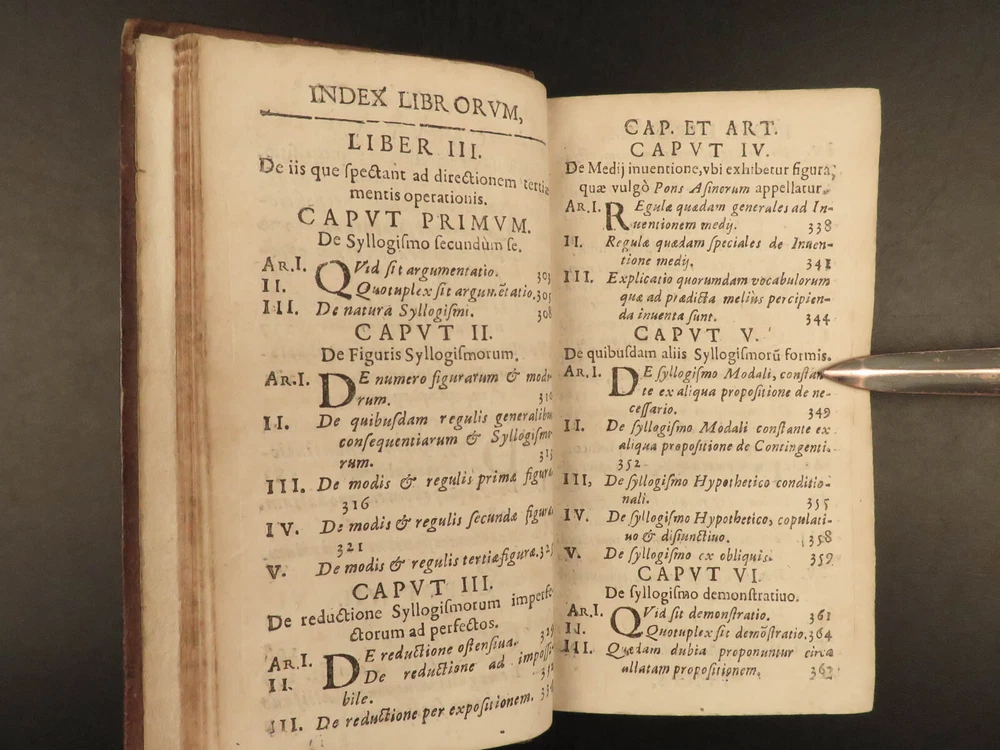 INDEX LIBRORVM,
LIBER III.
De iis que ſpectant ad directionem tertiæ
mentis operationis.
CAPVT PRIMVM.
De Syllogiſmo secundùm ſe.
AR.I. QVid ſit argumentatio. 303
II. Quotuplex ſit argumẽtatio. 305
III. De natura Syllogiſmi. 308
CAPVT II.
De Figuris Syllogiſmorum.
AR.I. DE numero figurarum & modo-
rum. 310
II. De quibuſdam regulis generalibus
conſequentiarum & Syllogiſmo-
rum. 313
III. De modis & regulis primæ figuræ
316
IV. De modis & regulis ſecundæ figuræ
321
V. De modis & regulis tertiæ figuræ. 325
CAPVT III.
De reductione Syllogiſmorum imperfe-
ctorum ad perfectos.
AR.I. DE reductione oſtenſiua. 329
II. De reductione ad impoſſi-
bile. 332
III. De reductione per expoſitionem. 334
CAP. ET ART.
CAPVT IV.
De Medij inuentione, vbi exhibetur figura,
quæ vulgò Pons Aſinorum appellatur.
AR.I. REgulæ quædam generales ad In-
uentionem medij. 338
II. Regulæ quædam ſpeciales de Inuen-
tione medij. 341
III. Explicatio quorumdam vocabulorum
quæ ad prædicta meliùs percipien-
da inuenta ſunt. 344
CAPVT V.
De quibuſdam aliis Syllogiſmorũ formis.
AR.I. DE ſyllogiſmo Modali, conſtan-
te ex aliqua propoſitione de ne-
ceſſario. 349
II. De ſyllogiſmo Modali conſtante ex
aliqua propoſitione de Contingenti.
352
III, De ſyllogiſmo Hypothetico conditio-
nali. 355
IV. De ſyllogiſmo Hypothetico, copulati-
uo & diſiunctiuo. 358
V. De ſyllogiſmo ex obliquis. 359
CAPVT VI.
De ſyllogiſmo demonſtratiuo.
AR.I. QVid ſit demonſtratio. 361
II. Quotuplex ſit demõſtratio. 364
III. Quædam dubia proponuntur circa
allatam propoſitionem. 367